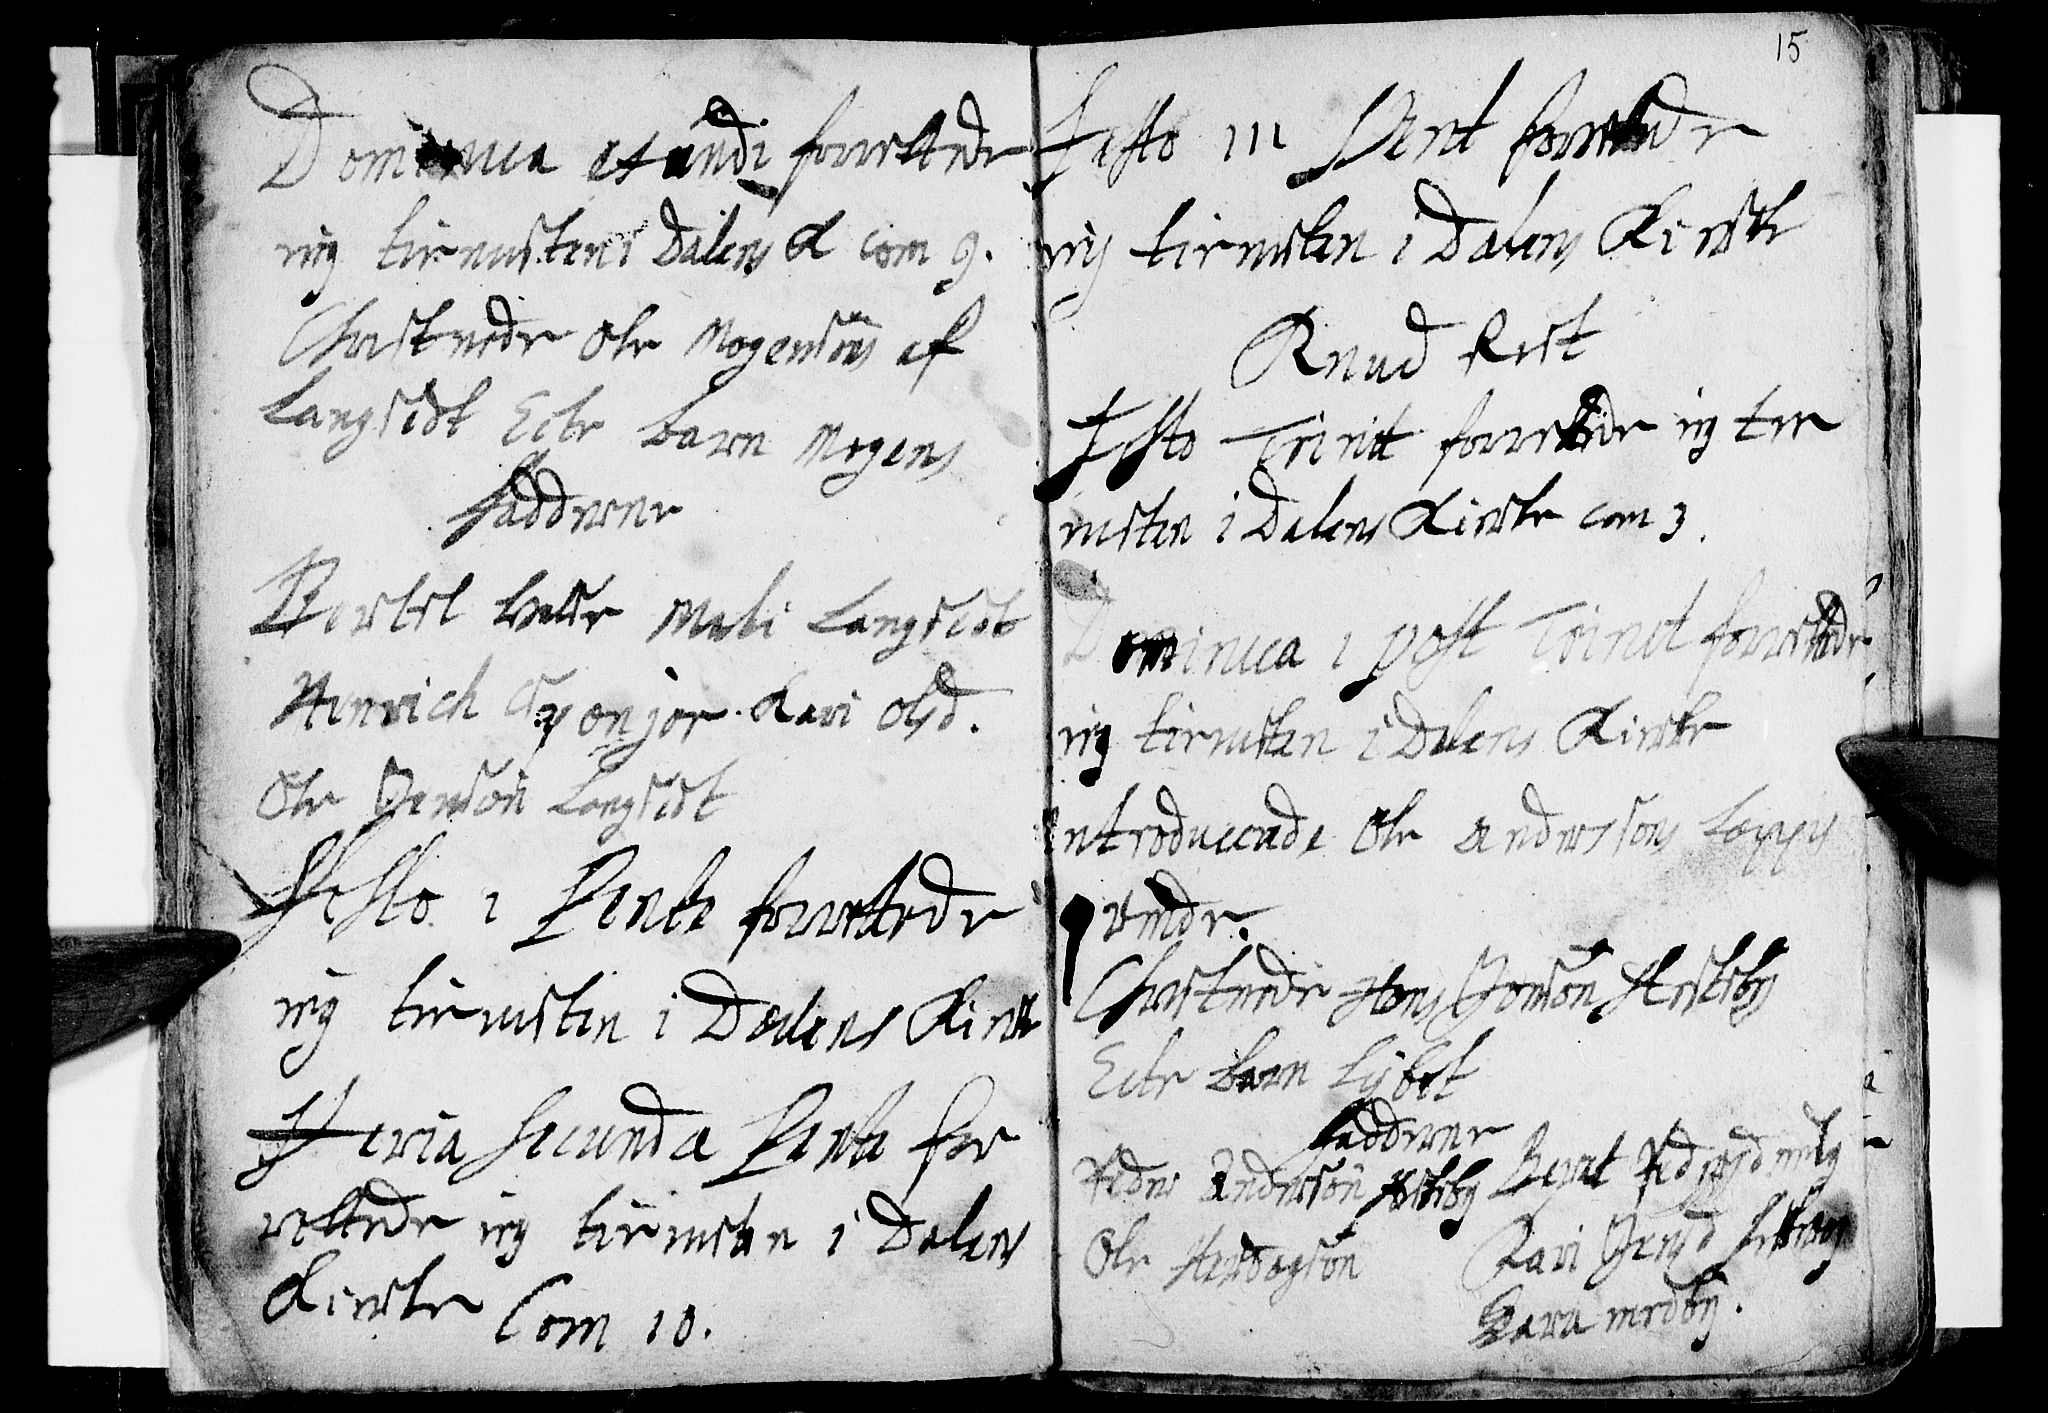 Dominica exaudi forrettede
ieg tienisten i Dalens K com 9.
Christnede Ole Mogensöns af
Langsedt Ecte barn Mogens
Faddrene
Bertel Mali Langsedt
Henrich Kari Olsd.
Ole Jensön Langsedt
Festo 1 Pente forrettede
ieg tienisten i Dalens Kircke
Feria secunda Pente for
rettede ieg tienisten i Dalens
Kircke Com 10.
15
Festo III Pent forrettede
ieg tienisten i Dalens Kircke
Knud Rest
Festo Trinit forrettede ieg tie
nisten i Dalens Kircke com 3.
Dominica 1 post Trinit forrettede
ieg tienisten i Dalens Kircke
introducerede Ole Anderssons
qvinde.
Christnede Hans Jonsön
Ecte barn Lisbet
Faddrene
Peder Andersön
Ole
Kari Jensd